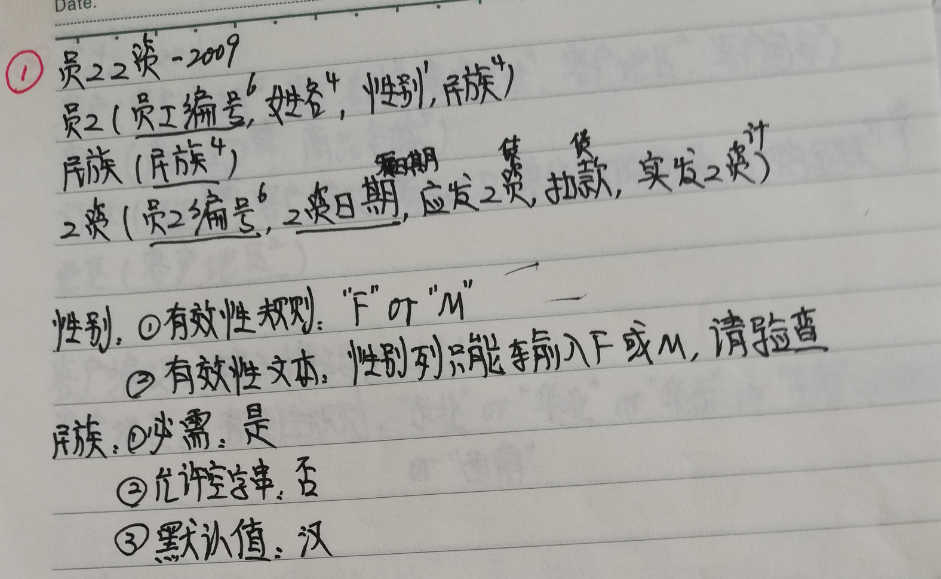 Date:
① 员工工资-2009
员工(员工编号⁶, 姓名⁴, 性别¹, 民族⁴)
民族(民族⁴)
短日期 货 货 计
工资(员工编号⁶, 工资日期, 应发工资, 扣款, 实发工资)
性别: ①有效性规则: "F" or "M"
②有效性文本: 性别列只能输入F或M, 请验查
民族: ①必需: 是
②允许空字串: 否
③默认值: 汉